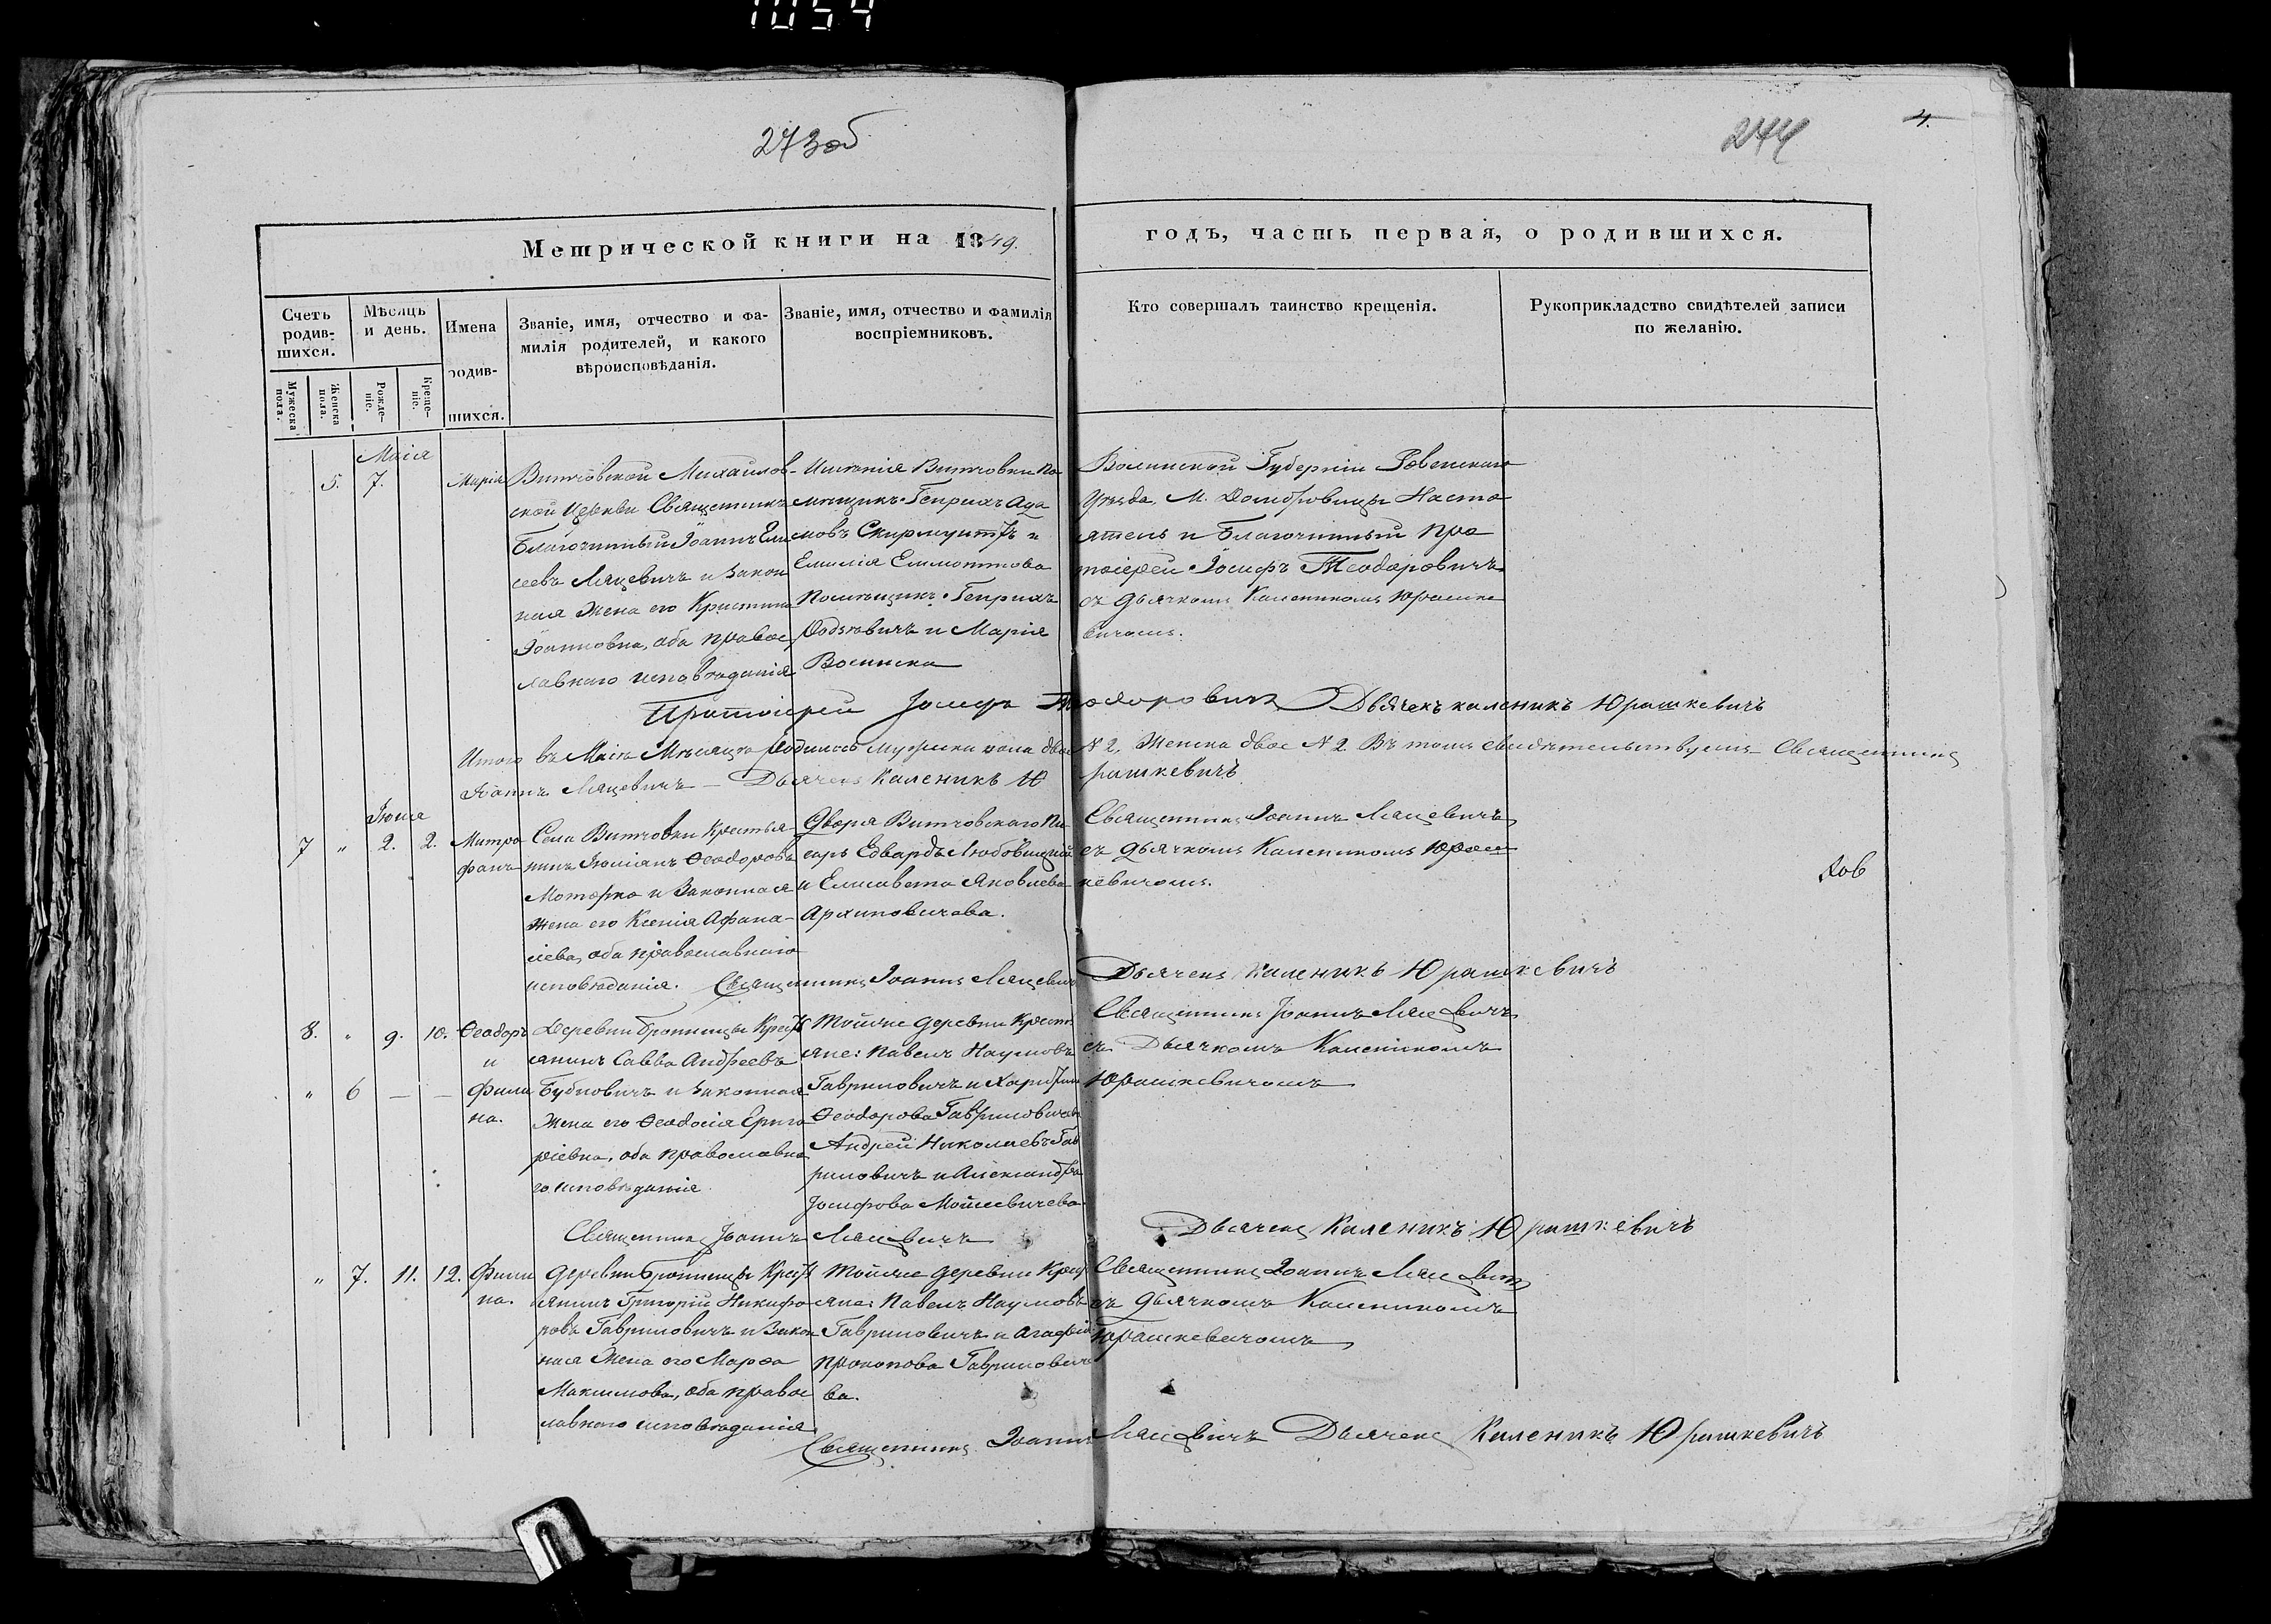 1054
273об
274
4.
Метрической книги на 1849.
годъ, часть первая, о родившихся.
Счетъ родив-шихся.
Мѣсяцъ и день.
Имена родив-шихся.
Званіе, имя, отчество и фа-
милія родителей, и какого
вѣроисповѣданія.
Званіе, имя, отчество и фамилія
воспріемниковъ.
Кто совершалъ таинство крещенія.
Рукоприкладство свидѣтелей записи
по желанію.
Мужеска пола.
Женска пола.
Рожде-ніе.
Креще-ніе.
Маія
5. 7. Марія
Витчовской Михайлов-
ской Церкви Священникъ
Благочинный Іоаннъ Ели
сеевъ Ляцевичъ и Закон
ная Жена его Кристина
Іоанновна, оба правос
лавнаго исповѣданія
Имѣнія Витчовки По
мѣщикъ Генрихъ Ада
мовъ Скирмунтъ и
Емилія
Помѣщикъ Генрихъ
и Марія
Волинской Губерніи Ровенскаго
Уѣзда, М. Домбровицы Насто
ятель и Благочинный Про
тоіерей Іосифъ Теодоровичъ
съ дьячкомъ Калеником Юрашке
вичомъ.
Протоіерей Іосифъ Теодоровичъ Дьячекъ каленикъ Юрашкевичъ
Итого въ Маіѣ Мѣсяцѣ Родилось мужеска пола двое N 2, Женска двое N 2 Въ томъ свидѣтельствуемъ Священникъ
Іоаннъ Ляцевичъ – Дьячекъ Каленикъ Юрашкевичъ
Іюня
7 " 2. 2. Митро
фанъ
Села Витчовки Крестья
нинъ Іюліянъ Ѳеодоровъ
Моторко и Законная
Жена его Ксенія Афана-
сіева, оба православнаго
исповѣданія.
Двора Витчовскаго Пи
саръ Едвардъ Любовицкій
и Елисавета Яковлева
Архиповичова.
Священникъ Іоаннъ Ляцевичъ
съ дьячкомъ Калеником Юраш
кевичомъ.
Священникъ Іоаннъ Ляцевичъ Дьячекъ Каленикъ Юрашкевичъ
8. " 9. 10. Ѳеодоръ
и
" 6 — — Фили
на.
Деревни Бронницы Кресть
янинъ Савва Андреевъ
Бубновичъ и Законная
Жена его Ѳеодосія Григо
ріевна, оба православна
го исповѣданія
Тойже деревни Крест
яне: Павелъ Наумовъ
Гавриловичъ и
Ѳеодорова Гавриловичева
Андрей Николаевъ Гав
риловичъ и Александра
Іосифова Мойсевичева
Священникъ Іоаннъ Ляцевичъ
съ Дьячкомъ Калеником
Юрашкевичомъ
Священникъ Іоаннъ Ляцевичъ Дьячекъ Каленикъ Юрашкевичъ
" 7. 11. 12. Фили
на.
Деревни Бронницы Крест
янинъ Григорій Никифо
ровъ Гавриловичъ и Закон
ная Жена его Марѳа
Максимова, оба правос
лавнаго исповѣданія
Тойже деревни Крест
яне: Павелъ Наумовъ
Гавриловичъ и Агафія
Прокопова Гавриловиче
ва.
Священникъ Іоаннъ Ляцевичъ
съ дьячкомъ Калеником
Юрашкевичомъ
Священникъ Іоаннъ Ляцевичъ Дьячекъ Каленикъ Юрашкевичъ